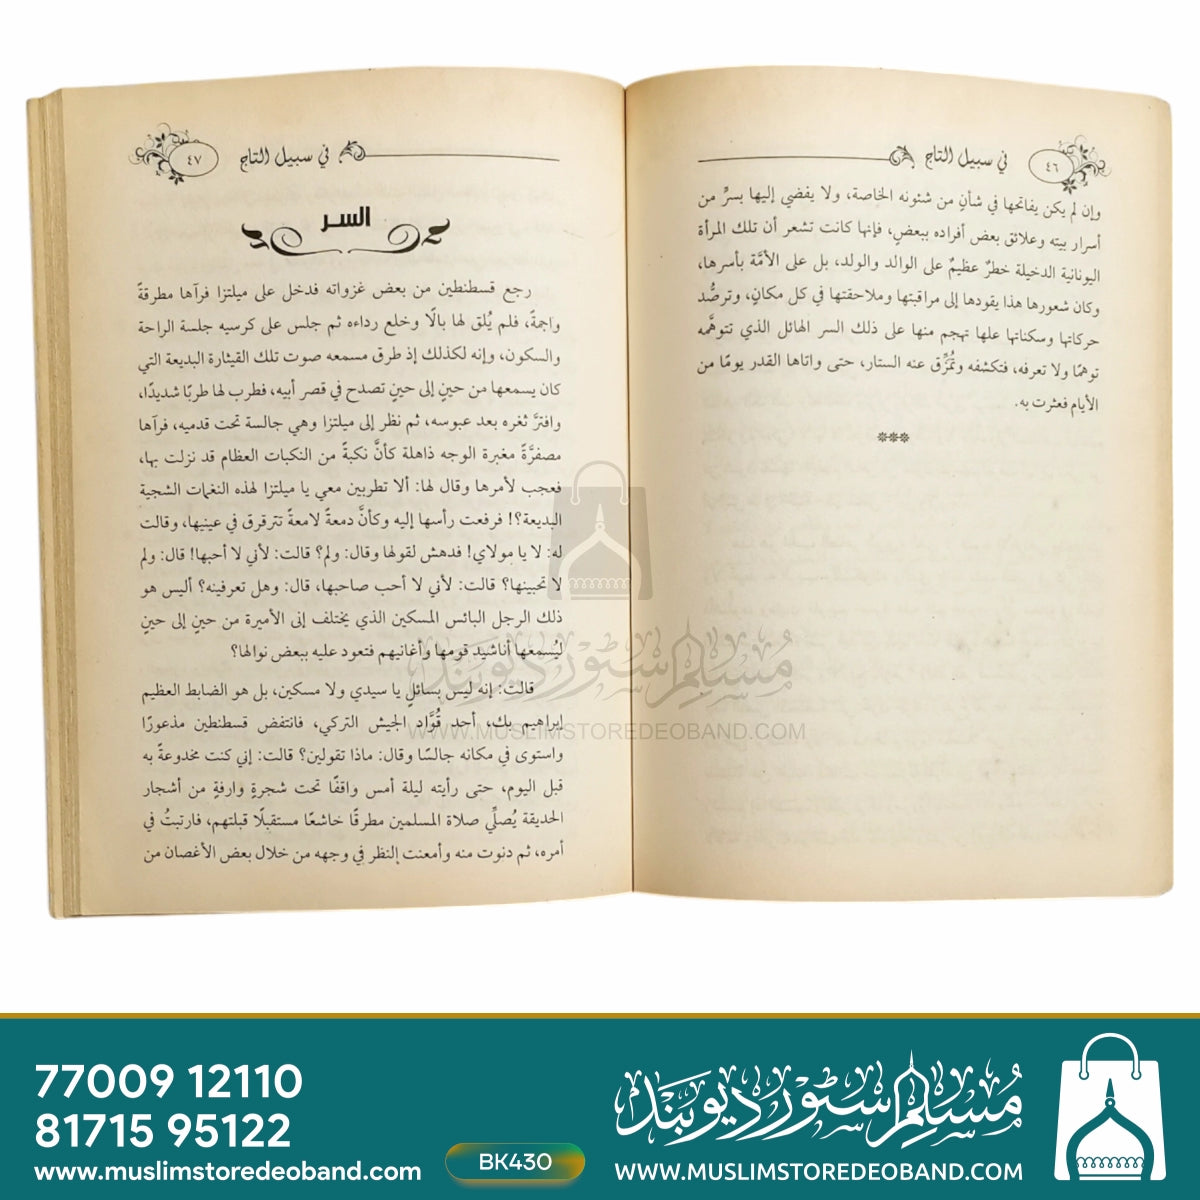 في سبيل التاج
٤٦
وإن لم يكن يفاتحها في شأنٍ من شئونه الخاصة، ولا يفضي إليها بسرٍّ من
أسرار بيته وعلائق بعض أفراده ببعضٍ، فإنها كانت تشعر أن تلك المرأة
اليونانية الدخيلة خطرٌ عظيمٌ على الوالد والولد، بل على الأمَّة بأسرها،
وكان شعورها هذا يقودها إلى مراقبتها وملاحقتها في كل مكانٍ، وترصُّد
حركاتها وسكناتها علها تهجم منها على ذلك السر الهائل الذي تتوهَّمه
توهمًا ولا تعرفه، فتكشفه وتُمزِّق عنه الستار، حتى واتاها القدر يومًا من
الأيام فعثرت به.
***
في سبيل التاج
٤٧
السر
رجع قسطنطين من بعض غزواته فدخل على ميلتزا فرآها مطرقةً
واجمةً، فلم يُلق لها بالًا وخلع رداءه ثم جلس على كرسيه جلسة الراحة
والسكون، وإنه لكذلك إذ طرق مسمعه صوت تلك القيثارة البديعة التي
كان يسمعها من حينٍ إلى حينٍ تصدح في قصر أبيه، فطرب لها طربًا شديدًا،
وافترَّ ثغره بعد عبوسه، ثم نظر إلى ميلتزا وهي جالسة تحت قدميه، فرآها
مصفرَّةً مغبرة الوجه ذاهلة كأنَّ نكبةً من النكبات العظام قد نزلت بها،
فعجب لأمرها وقال لها: ألا تطربين معي يا ميلتزا لهذه النغمات الشجية
البديعة؟! فرفعت رأسها إليه وكأنَّ دمعةً لامعةً تترقرق في عينيها، وقالت
له: لا يا مولاي! فدهش لقولها وقال: ولم؟ قالت: لأني لا أحبها! قال: ولم
لا تحبينها؟ قالت: لأني لا أحب صاحبها، قال: وهل تعرفينه؟ أليس هو
ذلك الرجل البائس المسكين الذي يختلف إلى الأميرة من حينٍ إلى حينٍ
ليُسمعها أناشيد قومها وأغانيهم فتعود عليه ببعض نوالها؟
قالت: إنه ليس بسائلٍ يا سيدي ولا مسكين، بل هو الضابط العظيم
إبراهيم بك، أحد قُوَّاد الجيش التركي، فانتفض قسطنطين مذعورًا
واستوى في مكانه جالسًا وقال: ماذا تقولين؟ قالت: إني كنت مخدوعةً به
قبل اليوم، حتى رأيته ليلة أمس واقفًا تحت شجرةٍ وارفةٍ من أشجار
الحديقة يُصلِّي صلاة المسلمين مطرقًا خاشعًا مستقبلًا قبلتهم، فارتبتُ في
أمره، ثم دنوت منه وأمعنت النظر في وجهه من خلال بعض الأغصان من
مسلم سٹور دیوبند
WWW.MUSLIMSTOREDEOBAND.COM
77009 12110
81715 95122
www.muslimstoredeoband.com
BK430
مسلم سٹور دیوبند
WWW.MUSLIMSTOREDEOBAND.COM